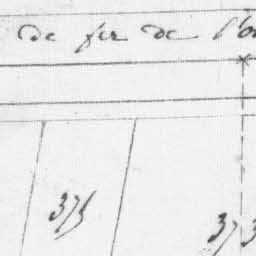 de fer de l'o
375
373